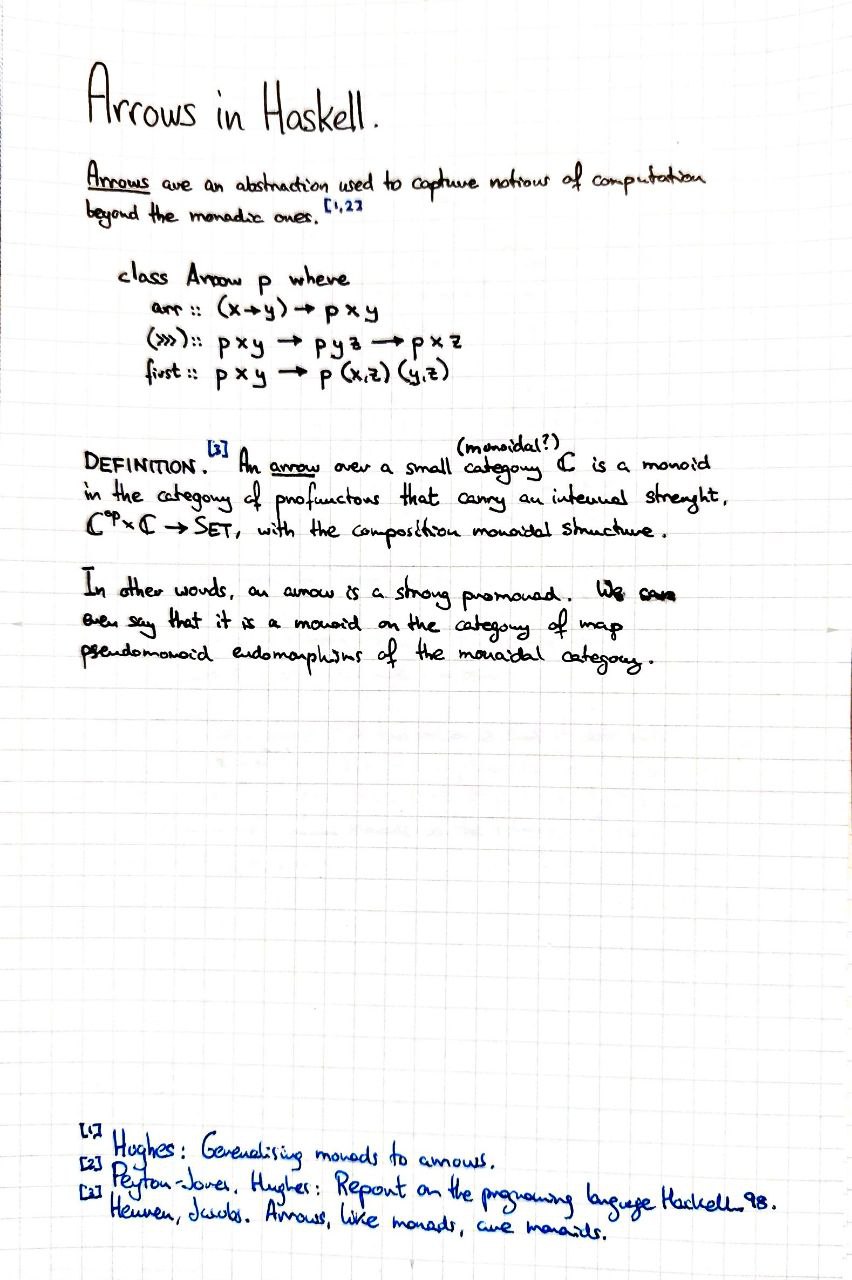 Arrows in Haskell.
Arrows are an abstraction used to capture notions of computation
beyond the monadic ones. [1,2]
class Arrow p where
arr :: (x→y) → p x y
(>>>) :: p x y → p y z → p x z
first :: p x y → p (x,z) (y,z)
(monoidal?)
DEFINITION. [3] An arrow over a small category ℂ is a monoid
in the category of profunctors that carry an internal strenght,
ℂᵒᵖ×ℂ → SET, with the composition monoidal structure.
In other words, an arrow is a strong promonad. We can
even say that it is a monoid on the category of map
pseudomonoid endomorphisms of the monoidal category.
[1] Hughes: Generalising monads to arrows.
[2] Peyton-Jones, Hughes: Report on the programing language Haskell 98.
[3] Heunen, Jacobs. Arrows, like monads, are monoids.